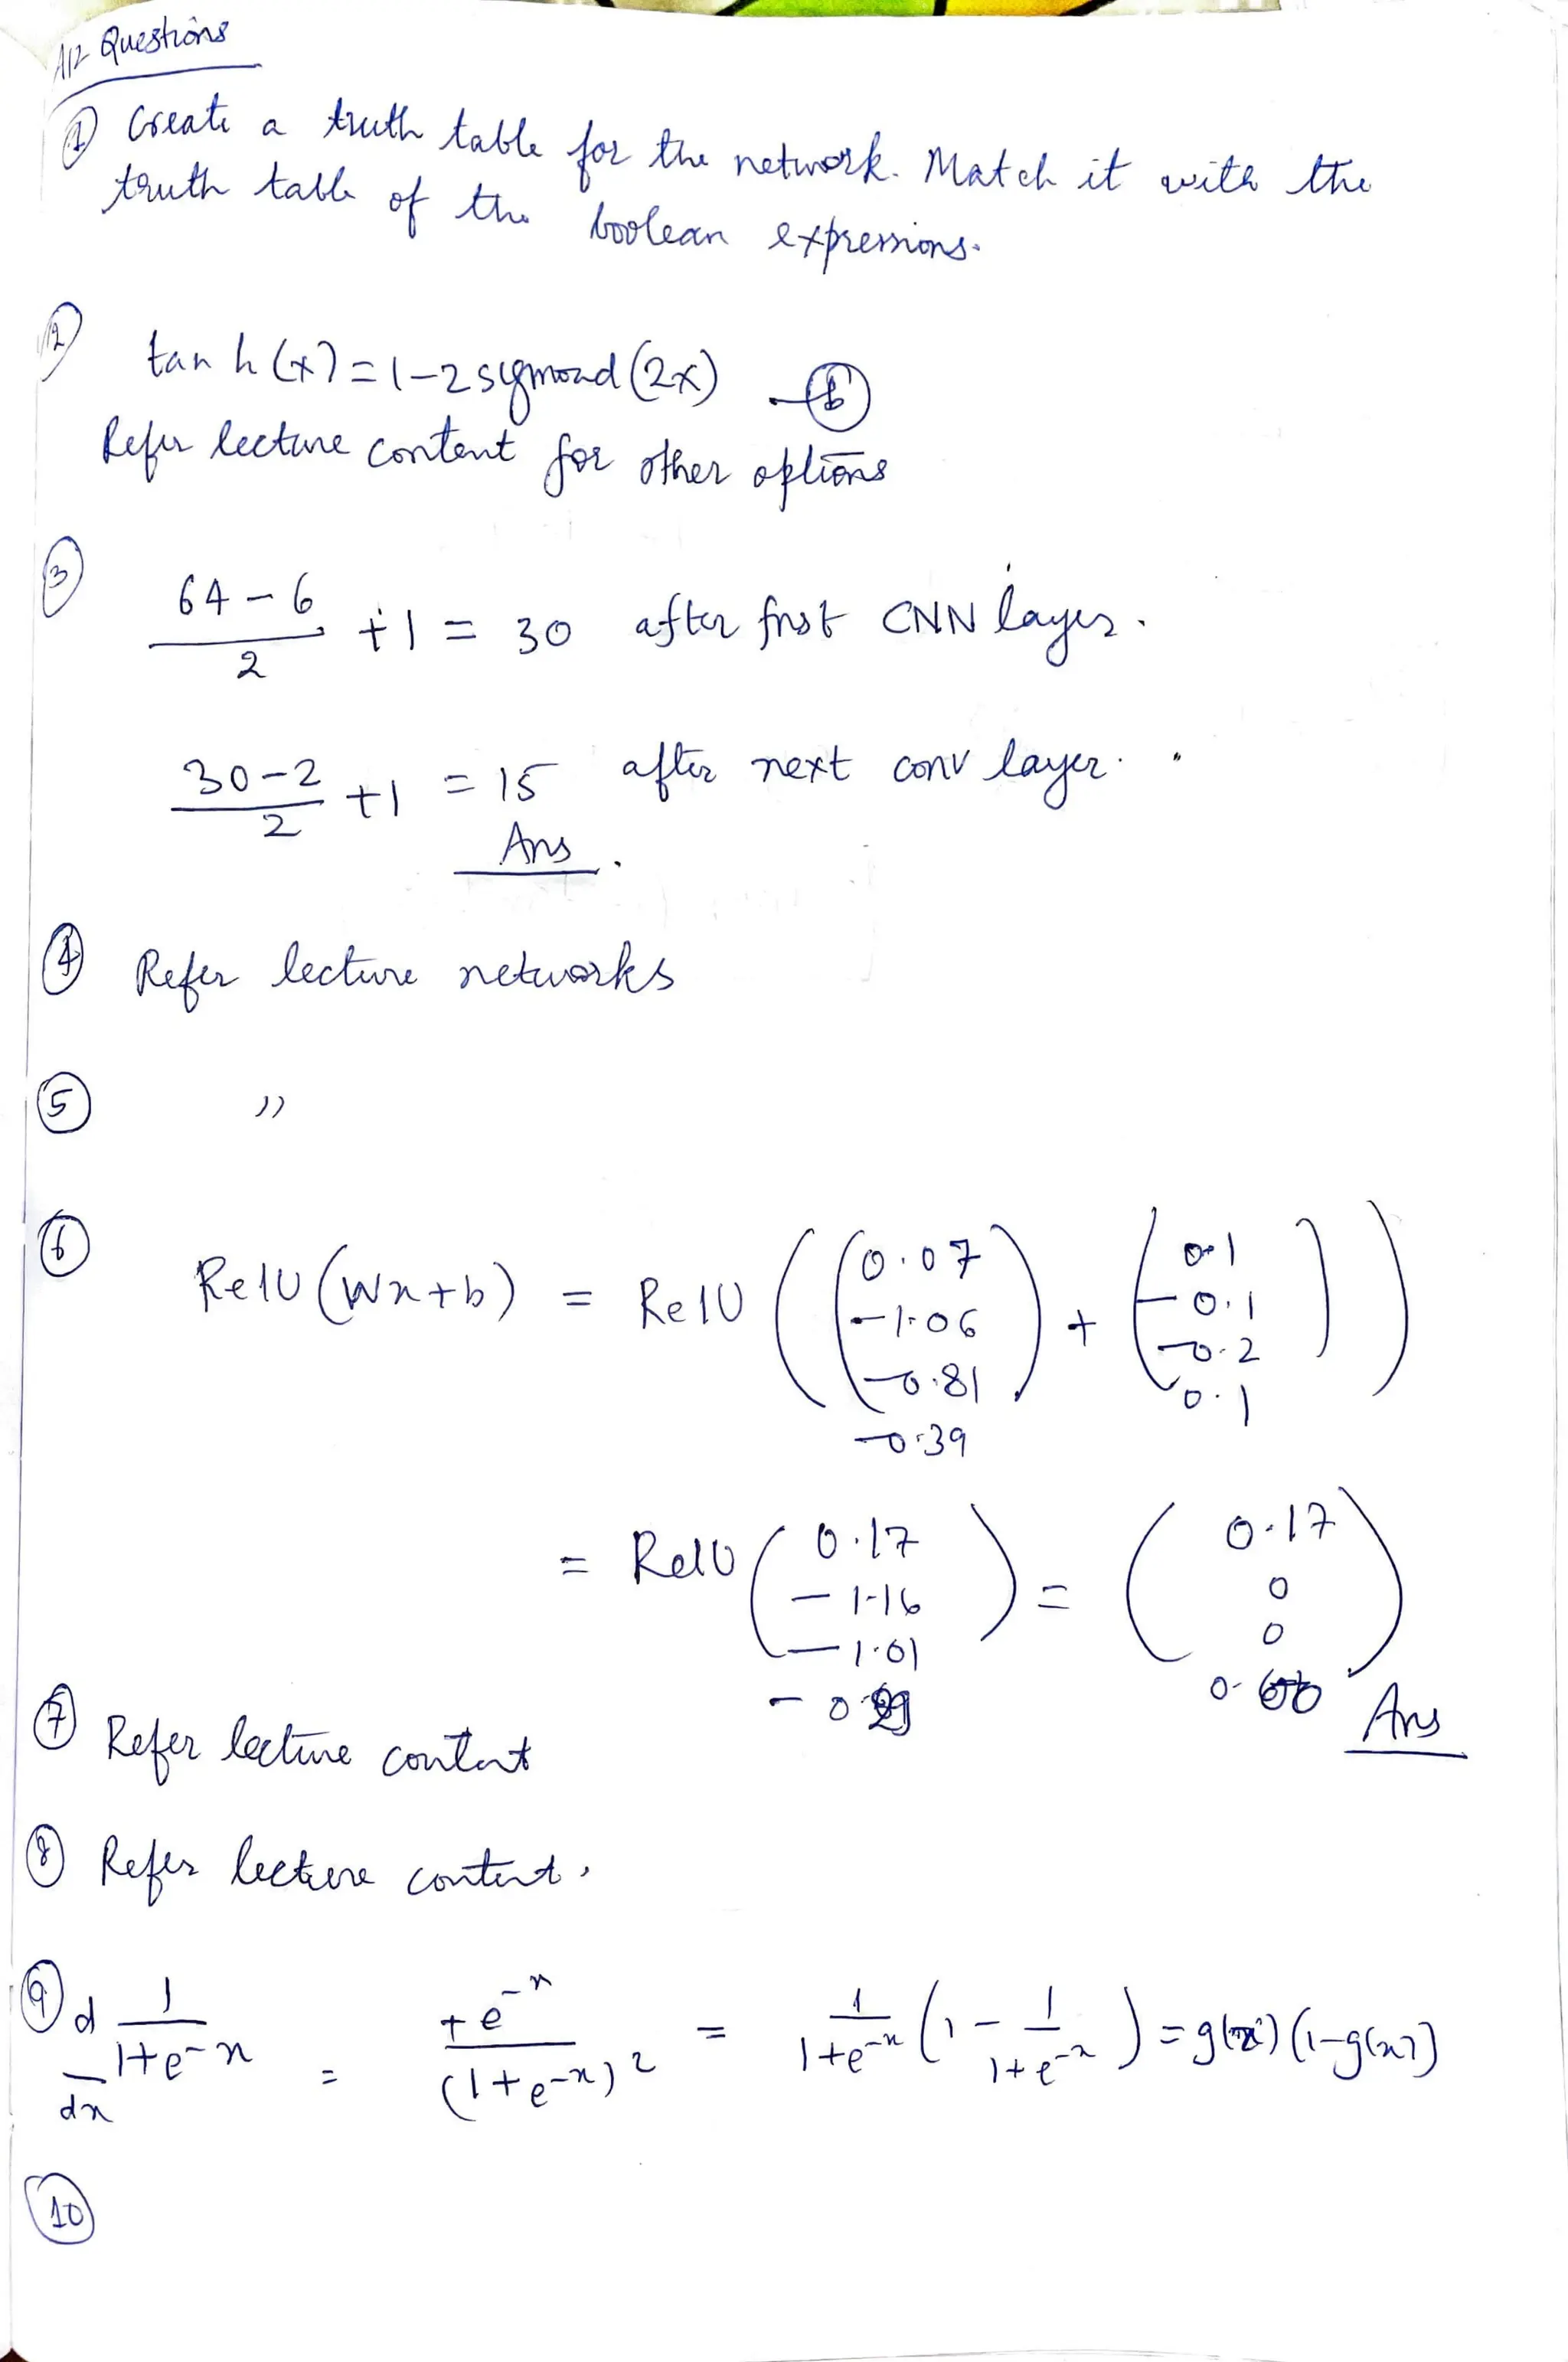 A12 Questions
① Create a truth table for the network. Match it with the
truth table of the boolean expressions.
② tan h (x) = 1 - 2 sigmoid (2x) - ⓑ
Refer lecture content for other options
③ (64 - 6)/2 + 1 = 30 after first CNN layer.
(30 - 2)/2 + 1 = 15 after next conv layer.
Ans.
④ Refer lecture networks
⑤ "
⑥ RelU (Wx + b) = RelU ((0.07 -1.06 -0.81 -0.39) + (0.1 -0.1 -0.2 0.1))
= RelU (0.17 -1.16 -1.01 -0.29) = (0.17 0 0 0) Ans
⑦ Refer lecture content
⑧ Refer lecture content.
⑨ d/dx 1/(1+e^-x) = +e^-x/(1+e^-x)^2 = 1/(1+e^-x) (1 - 1/(1+e^-x)) = g(x) (1-g(x))
⑩